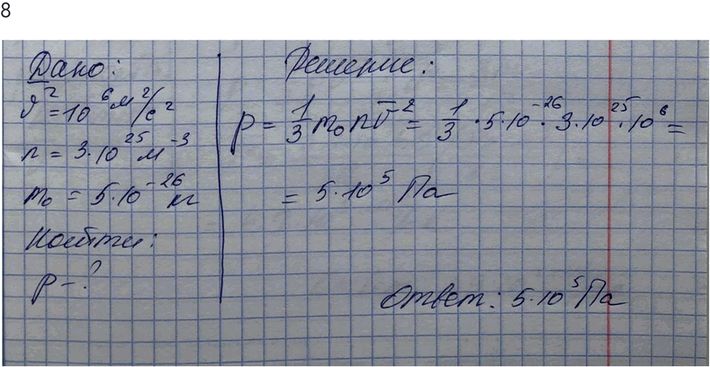 8
Дано:
υ² = 10⁶ м²/с²
n = 3·10²⁵ м⁻³
m₀ = 5·10⁻²⁶ кг
Найти:
p - ?
Решение:
p = 1/3 m₀ n v̅² = 1/3 · 5·10⁻²⁶ · 3·10²⁵ · 10⁶ =
= 5·10⁵ Па
Ответ: 5·10⁵ Па